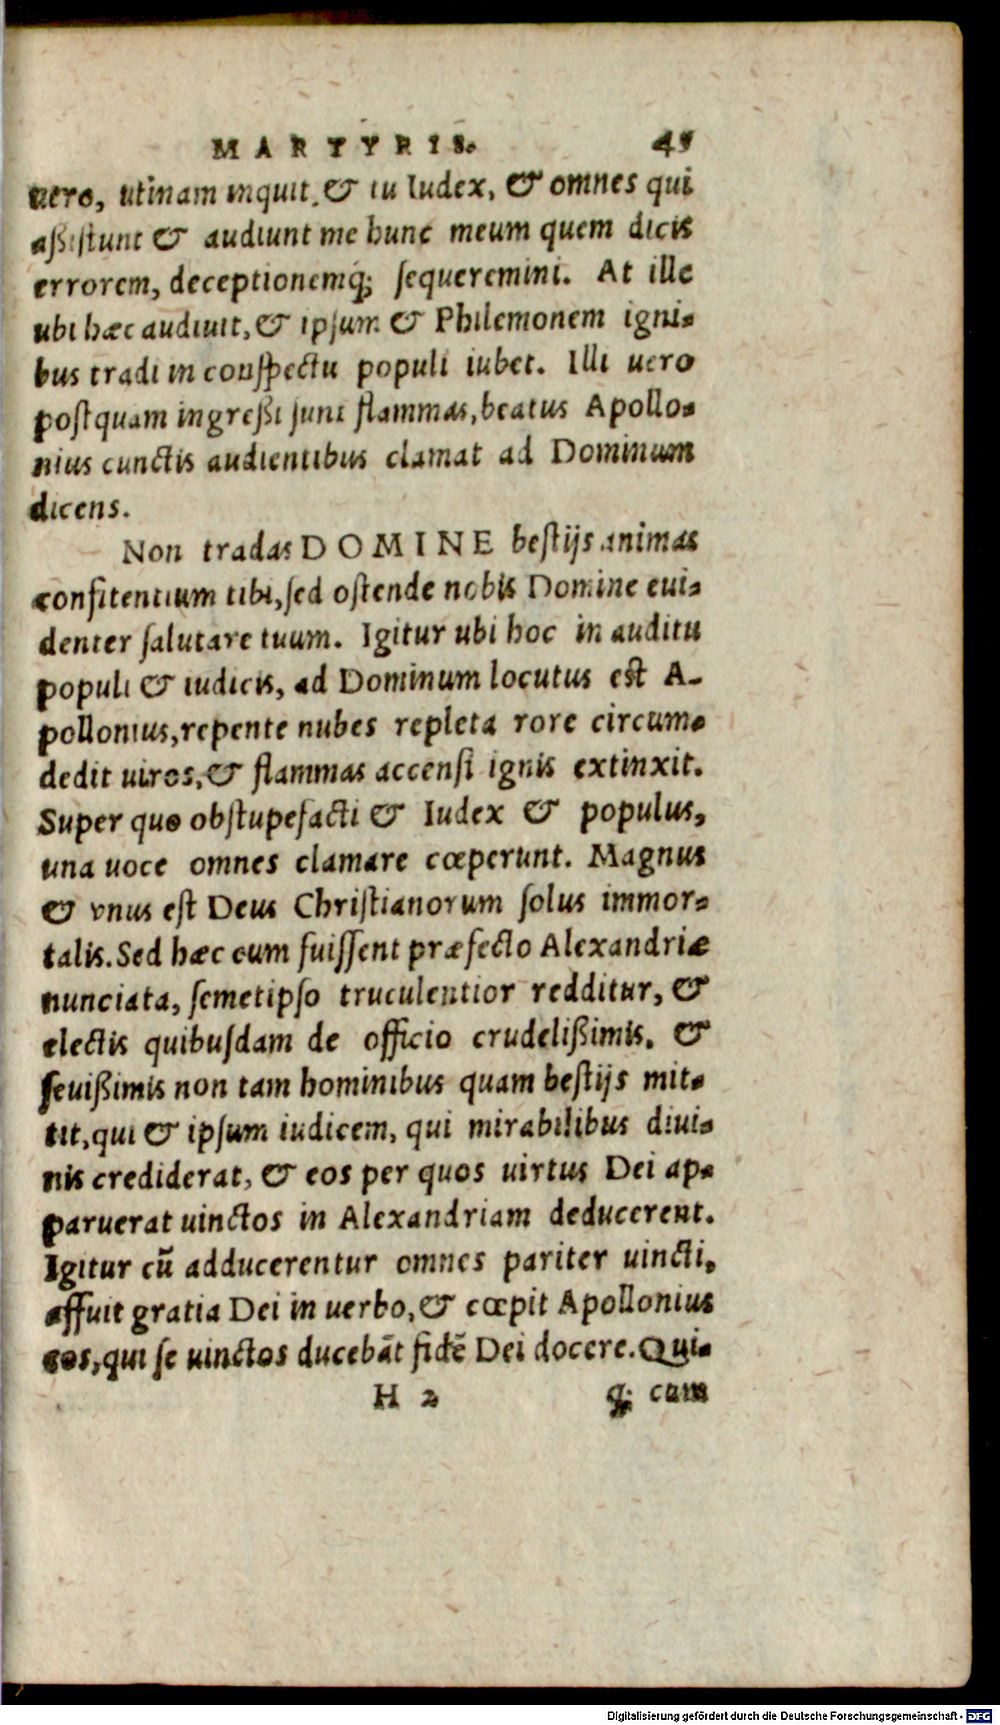 MARTYRIS. 45
uero, utinam inquit, & tu Iudex, & omnes qui
aßistunt & audiunt me hunc meum quem dicis
errorem, deceptionemq́; sequeremini. At ille
ubi hæc audiuit, & ipsum & Philemonem igni-
bus tradi in conspectu populi iubet. Illi uero
postquam ingreßi sunt flammas, beatus Apollo-
nius cunctis audientibus clamat ad Dominum
dicens.
Non tradas DOMINE bestijs animas
confitentium tibi, sed ostende nobis Domine eui-
denter salutare tuum. Igitur ubi hoc in auditu
populi & iudicis, ad Dominum locutus est A-
pollonius, repente nubes repleta rore circum-
dedit uiros, & flammas accensi ignis extinxit.
Super quo obstupefacti & Iudex & populus,
una uoce omnes clamare cœperunt. Magnus
& vnus est Deus Christianorum solus immor-
talis. Sed hæc cum fuissent præfecto Alexandriæ
nunciata, semetipso truculentior redditur, &
electis quibusdam de officio crudelißimis, &
seuißimis non tam hominibus quam bestijs mit-
tit, qui & ipsum iudicem, qui mirabilibus diui-
nis crediderat, & eos per quos uirtus Dei ap-
paruerat uinctos in Alexandriam deducerent.
Igitur cū adducerentur omnes pariter uincti,
affuit gratia Dei in uerbo, & cœpit Apollonius
eos, qui se uinctos ducebāt fidē Dei docere. Qui-
H 2 q; cum
Digitalisierung gefördert durch die Deutsche Forschungsgemeinschaft - DFG